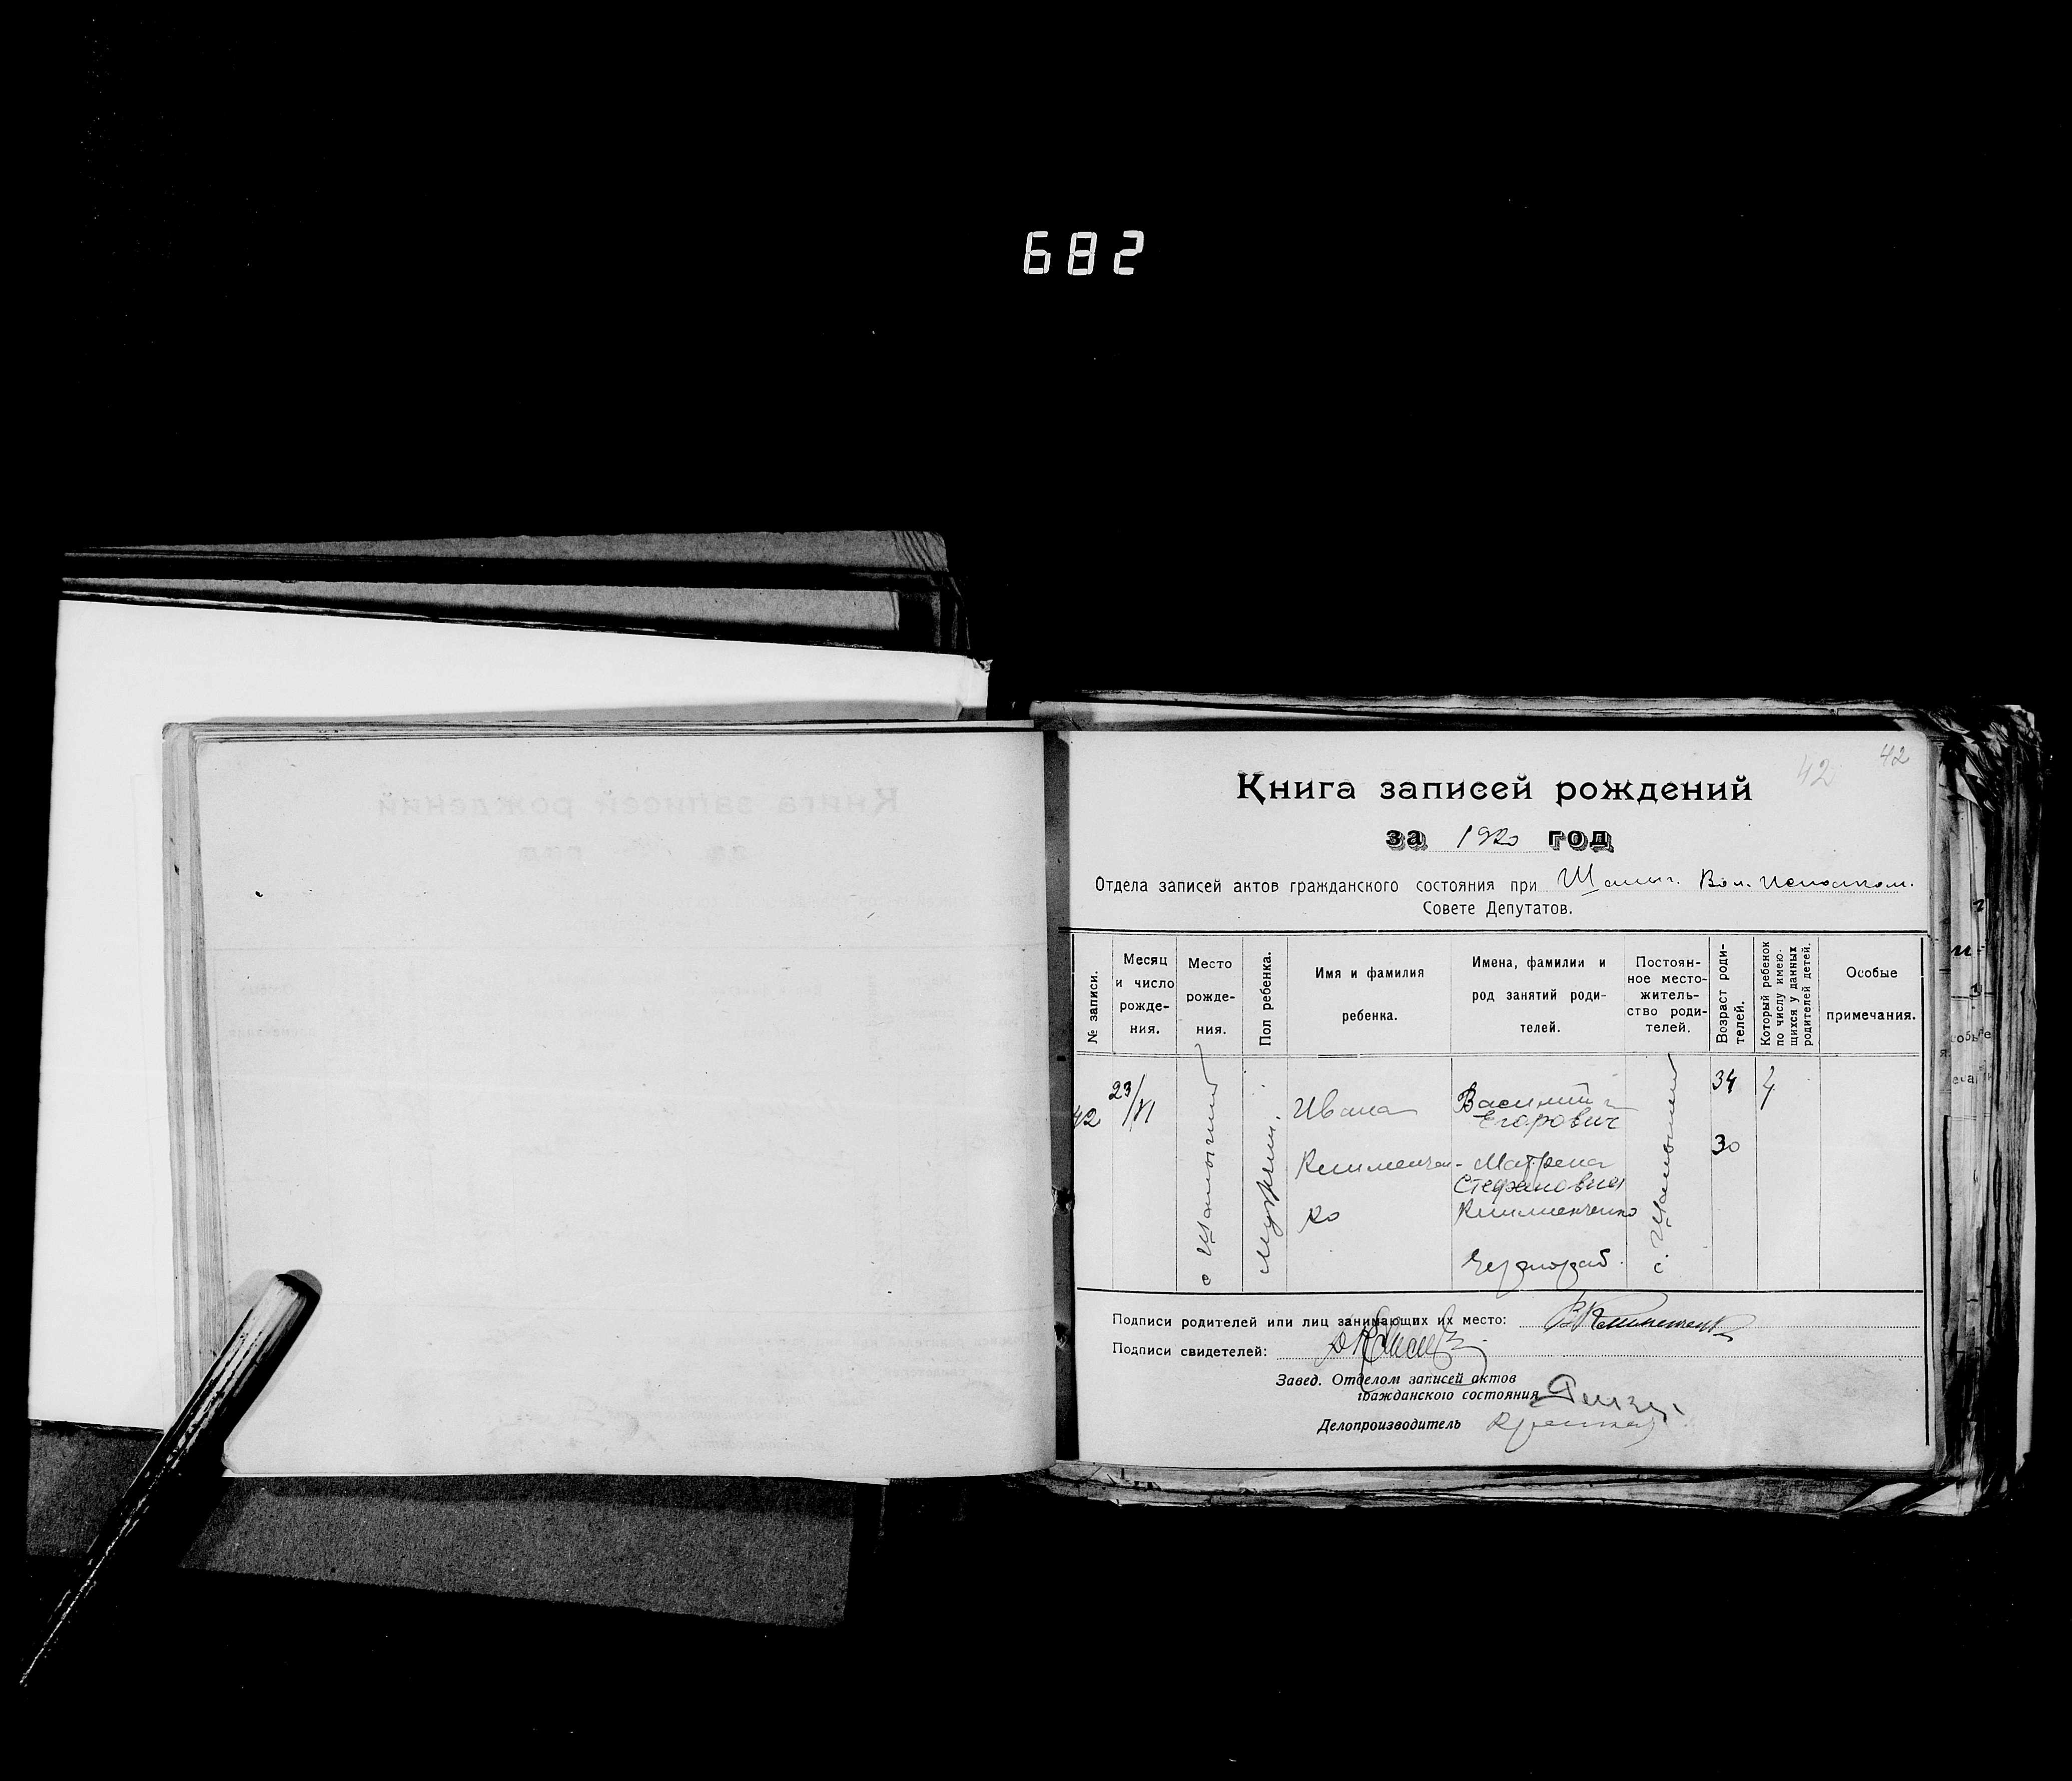 682
42 42
Книга записей рождений
за 1920 год
Отдела записей актов гражданского состояния при Шалыг. Вол. Исполком.
Совете Депутатов.
№ записи.
Месяц и число рожде- ния.
Место рожде- ния.
Пол ребенка.
Имя и фамилия ребенка.
Имена, фамилии и род занятий роди- телей.
Постоян- ное место- житель- ство роди- телей.
Возраст роди- телей.
Который ребенок по числу имею- щихся у данных родителей детей.
Особые примечания.
42
23/VI
с Шалыгино
Мужчин.
Ивана
Клименчен-
ко
Василий и
Егорович
Матрена
Стефановна
Клименченко
с. Шалыгино
34
30
4
Подписи родителей или лиц занимающих их место:
Подписи свидетелей:
Завед. Отделом записей актов
гражданского состояния
Делопроизводитель